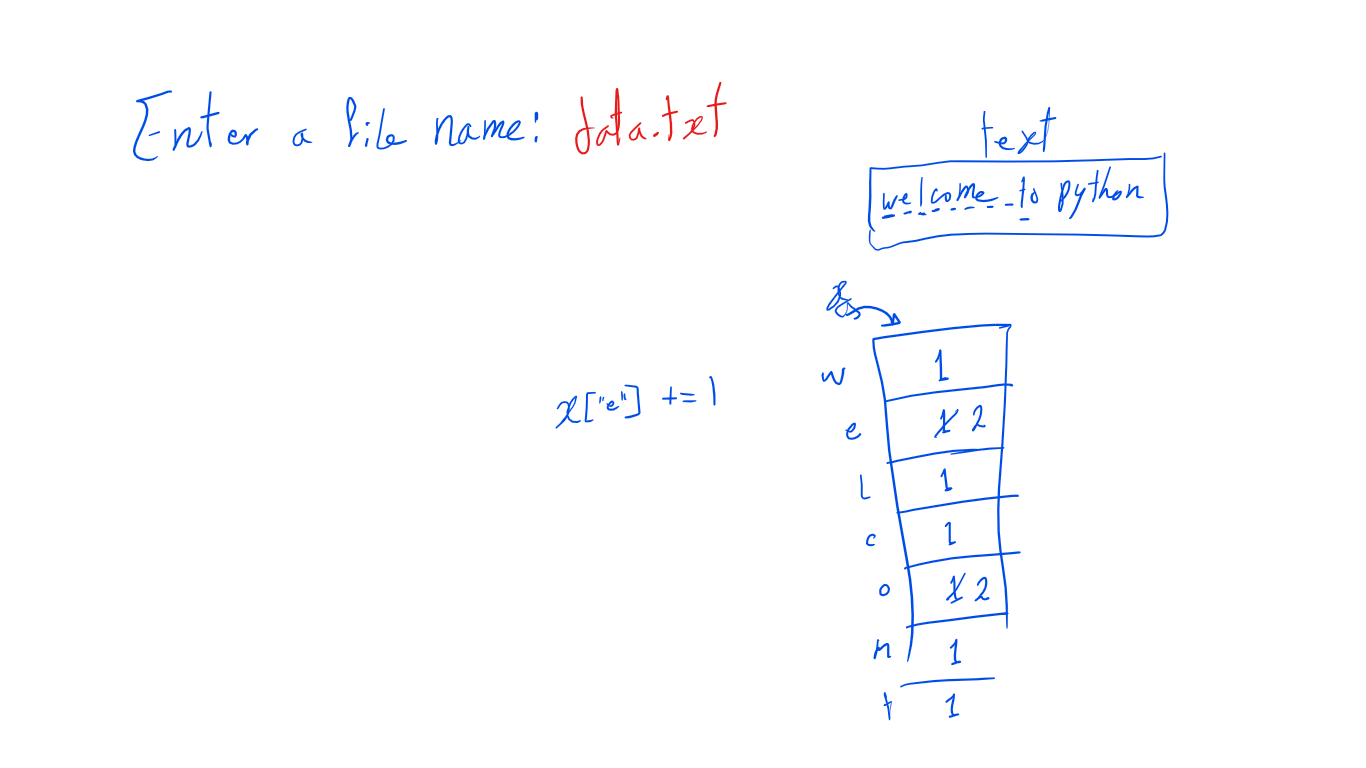 Enter a file name: data.txt
text
welcome to python
x["e"] += 1
w 1
e 1 2
l 1
c 1
o 1 2
m 1
t 1